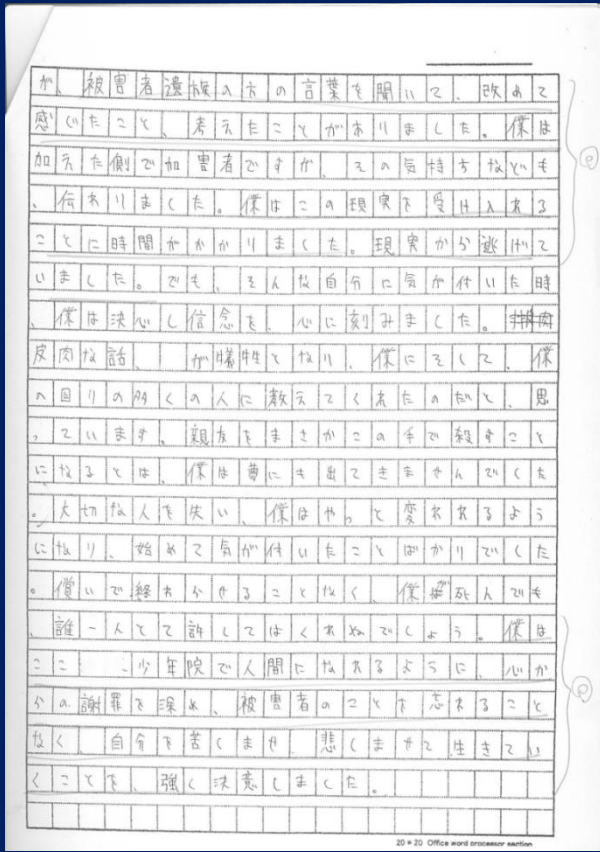 が、被害者遺族の方の言葉を聞いて、改めて
感じたこと、考えたことがありました。僕は
加えた側で加害者ですが、その気持ちなども
、伝わりました。僕はこの現実を受け入れる
ことに時間がかかりました。現実から逃げて
いました。でも、そんな自分に気が付いた時
、僕は決心し信念を、心に刻みました。
皮肉な話、 が犠牲となり、僕にそして、僕
の回りの多くの人に教えてくれたのだと、思
っています。親友をまさかこの手で殺すこと
になるとは、僕は夢にも出てきませんでした
。大切な人を失い、僕はやっと変われるよう
になり、始めて気が付いたことばかりでした
。償いで終わらせることなく、僕が死んでも
、誰一人とて許してはくれぬでしょう。僕は
ここ 少年院で人間になれるように、心か
らの謝罪を深め、被害者のことを忘れること
なく、自分を苦しませ、悲しませて生きてい
くことを、強く決意しました。
20 * 20 Office word processor section